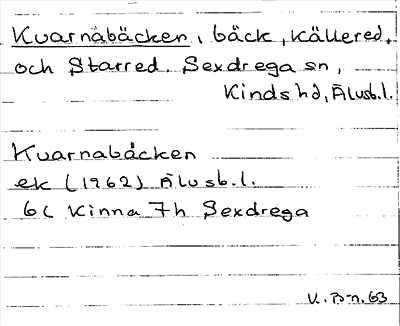 Kvarnabäcken, bäck, Källered,
och Starred. Sexdrega sn,
Kinds hd, Älvsb.l.
Kvarnabäcken
ek (1962) Älvsb.l.
6c Kinna 7h Sexdrega
V. B-n. 63